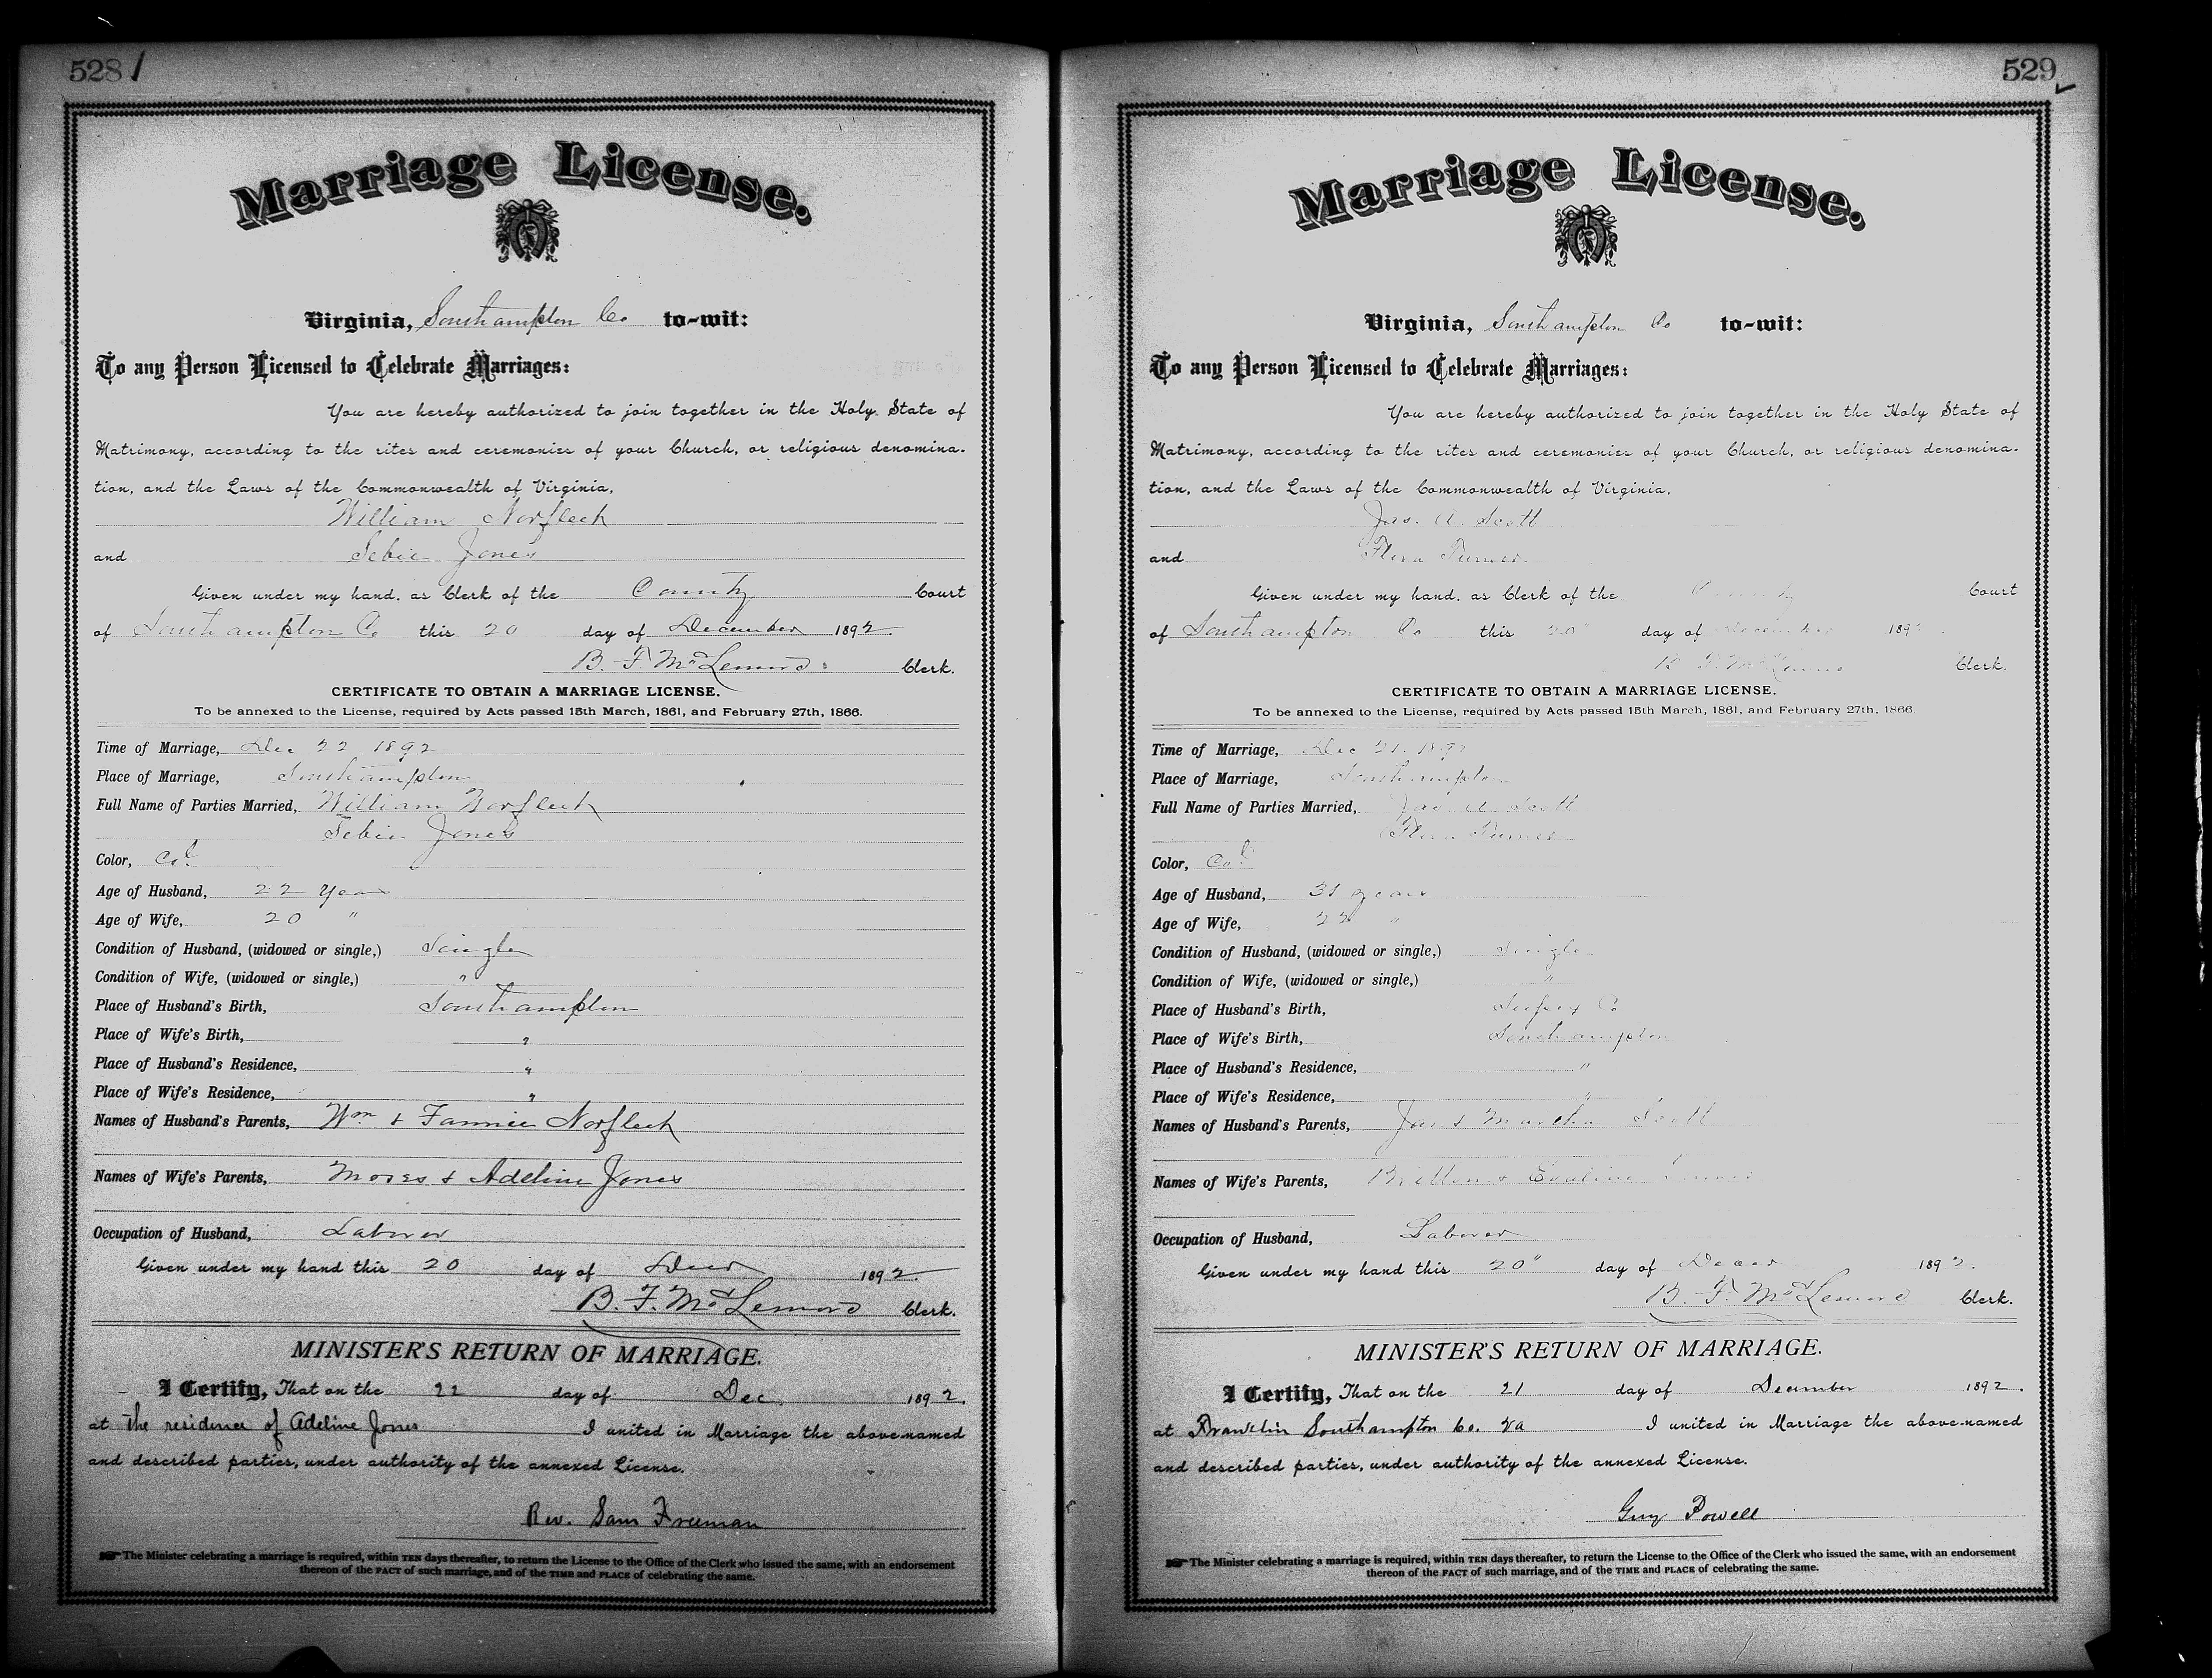 528
Marriage License.
Virginia, Southampton Co to-wit:
To any Person Licensed to Celebrate Marriages:
You are hereby authorized to join together in the Holy State of
Matrimony, according to the rites and ceremonies of your Church, or religious denomina-
tion, and the Laws of the Commonwealth of Virginia,
William Norfleet
and Jones
Given under my hand, as Clerk of the County Court
of Southampton Co this 20 day of December 1892.
B. F. McLemore Clerk.
CERTIFICATE TO OBTAIN A MARRIAGE LICENSE.
To be annexed to the License, required by Acts passed 15th March, 1861, and February 27th, 1866.
Time of Marriage, Dec 22 1892
Place of Marriage, Southampton
Full Name of Parties Married, William Norfleet
Jones
Color, Cold
Age of Husband, 22 Years
Age of Wife, 20 "
Condition of Husband, (widowed or single,) Single
Condition of Wife, (widowed or single,) "
Place of Husband's Birth, Southampton
Place of Wife's Birth, "
Place of Husband's Residence, "
Place of Wife's Residence, "
Names of Husband's Parents, Wm & Fannie Norfleet
Names of Wife's Parents, Moses & Adeline Jones
Occupation of Husband, Laborer
Given under my hand this 20 day of Decr 1892.
B. F. McLemore Clerk.
MINISTER'S RETURN OF MARRIAGE.
I Certify, That on the 22 day of Dec. 1892.
at The residence of Adeline Jones I united in Marriage the above-named
and described parties, under authority of the annexed License.
Rev. Sam Freeman
The Minister celebrating a marriage is required, within TEN days thereafter, to return the License to the Office of the Clerk who issued the same, with an endorsement
thereon of the FACT of such marriage, and of the TIME and PLACE of celebrating the same.
529
Marriage License.
Virginia, Southampton Co to-wit:
To any Person Licensed to Celebrate Marriages:
You are hereby authorized to join together in the Holy State of
Matrimony, according to the rites and ceremonies of your Church, or religious denomina-
tion, and the Laws of the Commonwealth of Virginia,
Jas. A. Scott
and Flora Turner
Given under my hand, as Clerk of the County Court
of Southampton Co this 20" day of December 189
B F McLemore Clerk.
CERTIFICATE TO OBTAIN A MARRIAGE LICENSE.
To be annexed to the License, required by Acts passed 15th March, 1861, and February 27th, 1866.
Time of Marriage, Dec 21. 1892
Place of Marriage, Southampton
Full Name of Parties Married, Jas A Scott
Flora Turner
Color, Cold
Age of Husband, 31 years
Age of Wife, 22 "
Condition of Husband, (widowed or single,) Single
Condition of Wife, (widowed or single,) "
Place of Husband's Birth, Co
Place of Wife's Birth, Southampton
Place of Husband's Residence, "
Place of Wife's Residence, "
Names of Husband's Parents, Jas & Martha Scott
Names of Wife's Parents, Britton & Turner
Occupation of Husband, Laborer
Given under my hand this 20" day of Decer 1892.
B. F. McLemore Clerk.
MINISTER'S RETURN OF MARRIAGE.
I Certify, That on the 21 day of December 1892.
at Franklin Southampton Co. Va I united in Marriage the above-named
and described parties, under authority of the annexed License.
Guy Powell
The Minister celebrating a marriage is required, within TEN days thereafter, to return the License to the Office of the Clerk who issued the same, with an endorsement
thereon of the FACT of such marriage, and of the TIME and PLACE of celebrating the same.